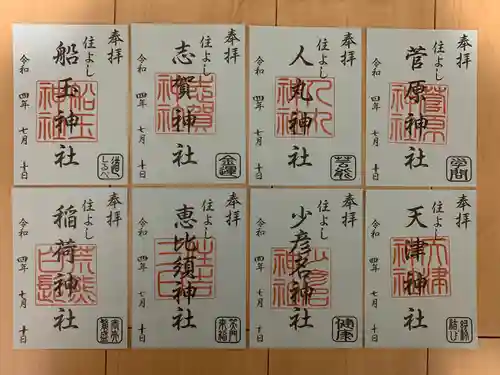 奉拝
住よし
船玉神社
令和四年七月十日
道しるべ
船玉神社
奉拝
住よし
志賀神社
令和四年七月十日
金運
志賀神社
奉拝
住よし
人丸神社
令和四年七月十日
芸能
人丸神社
奉拝
住よし
菅原神社
令和四年七月十日
学問
菅原神社
奉拝
住よし
稲荷神社
令和四年七月十日
商売繁盛
奉拝
住よし
恵比須神社
令和四年七月十日
笑門来福
奉拝
住よし
少彦名神社
令和四年七月十日
健康
少彦名神社
奉拝
住よし
天津神社
令和四年七月十日
縁結び
天津神社